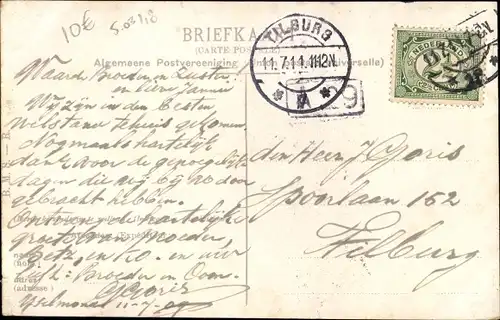 10€ 5.0218
BRIEFKA
(CARTE POSTALE)
Algemeene Postvereeniging (Union postale universelle)
TILBURG
11.7.11 11-12N
A
9
NEDERLAND
Waarde Broeder en Zuster
en lieve Jannie
Wij zijn in den besten
welstand te huis gekomen.
Nogmaals hartelijk
dank voor de genoegelijke
dagen die wij bij U door
gebracht hebben.
hartelijke
groeten van Moeder,
Betz, en Co. en uw
Broeder en Oom.
G Goris
IJselmonde 11-7-09
den Heer J Goris
Spoorlaan 162
Tilburg